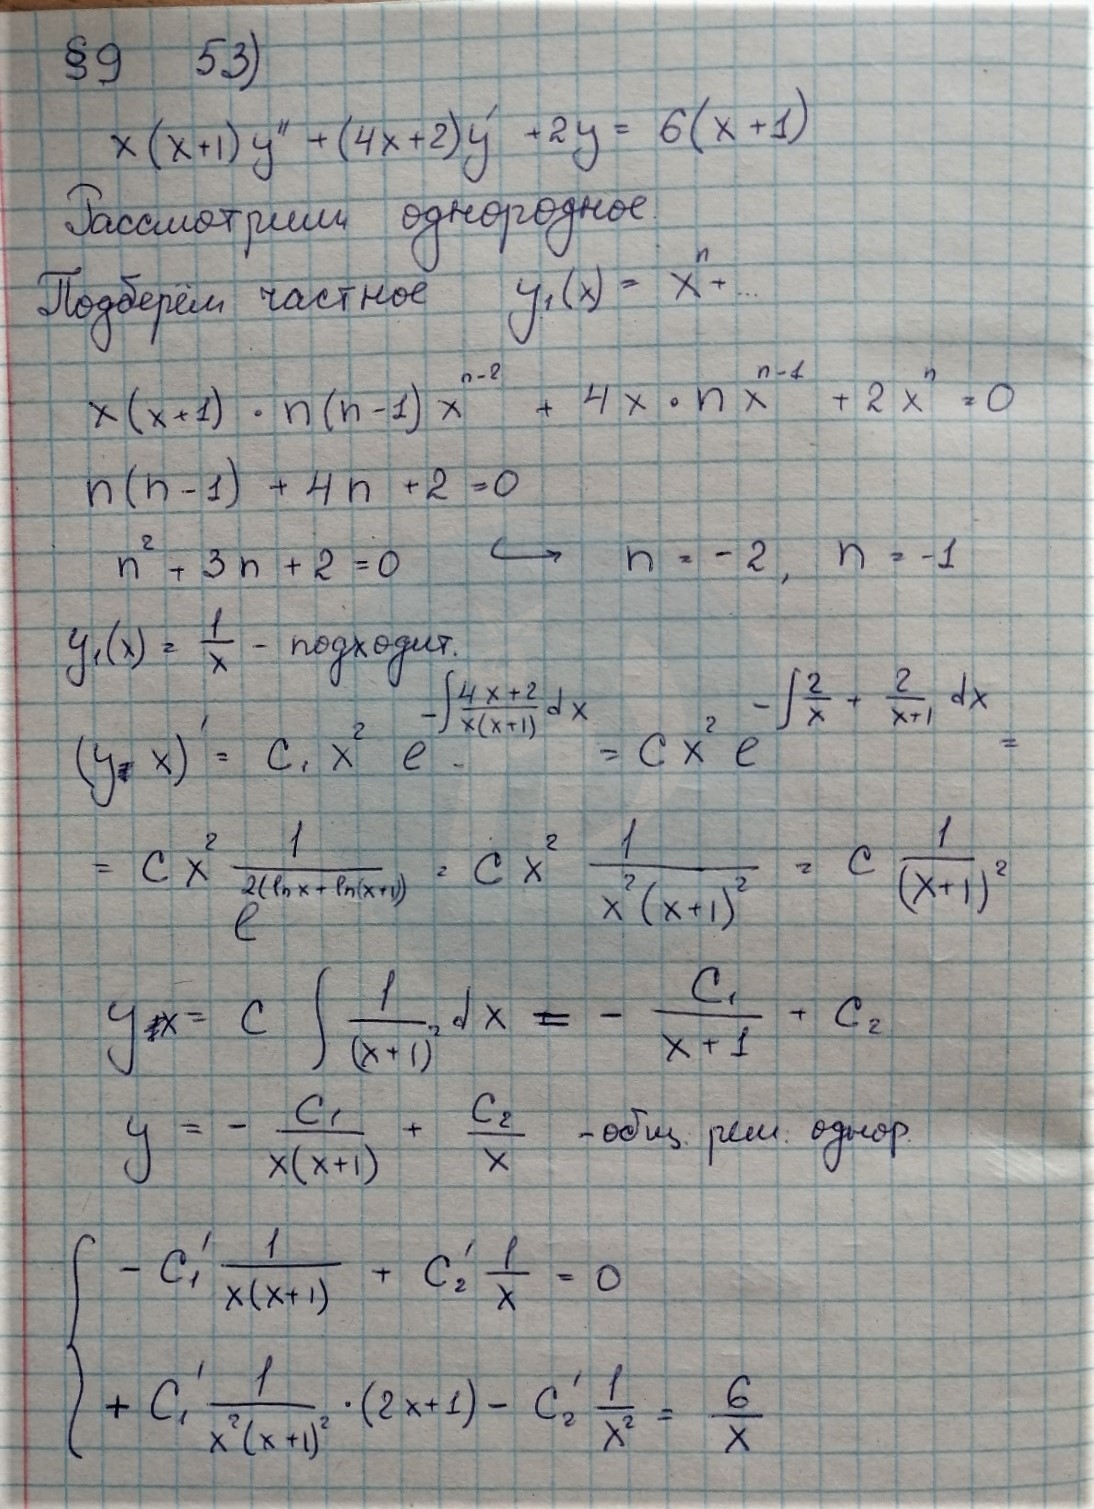 §9 53)
x(x+1)y'' + (4x+2)y' + 2y = 6(x+1)
Рассмотрим однородное.
Подберём частное y₁(x) = xⁿ + ...
x(x+1) · n(n-1)xⁿ⁻² + 4x · nxⁿ⁻¹ + 2xⁿ = 0
n(n-1) + 4n + 2 = 0
n² + 3n + 2 = 0 ↪ n = -2, n = -1
y₁(x) = 1/x - подходит.
(y x)' = C₁ x² e^(-∫ (4x+2)/(x(x+1)) dx) = C x² e^(-∫ 2/x + 2/(x+1) dx) =
= C x² 1/e^(2(ln x + ln(x+1)) = C x² 1/(x²(x+1)²) = C 1/(x+1)²
y x = C ∫ 1/(x+1)² dx = - C₁/(x+1) + C₂
y = - C₁/(x(x+1)) + C₂/x - общ. реш. однор.
{ - C₁' 1/(x(x+1)) + C₂' 1/x = 0
+ C₁' 1/(x²(x+1)²) · (2x+1) - C₂' 1/x² = 6/x